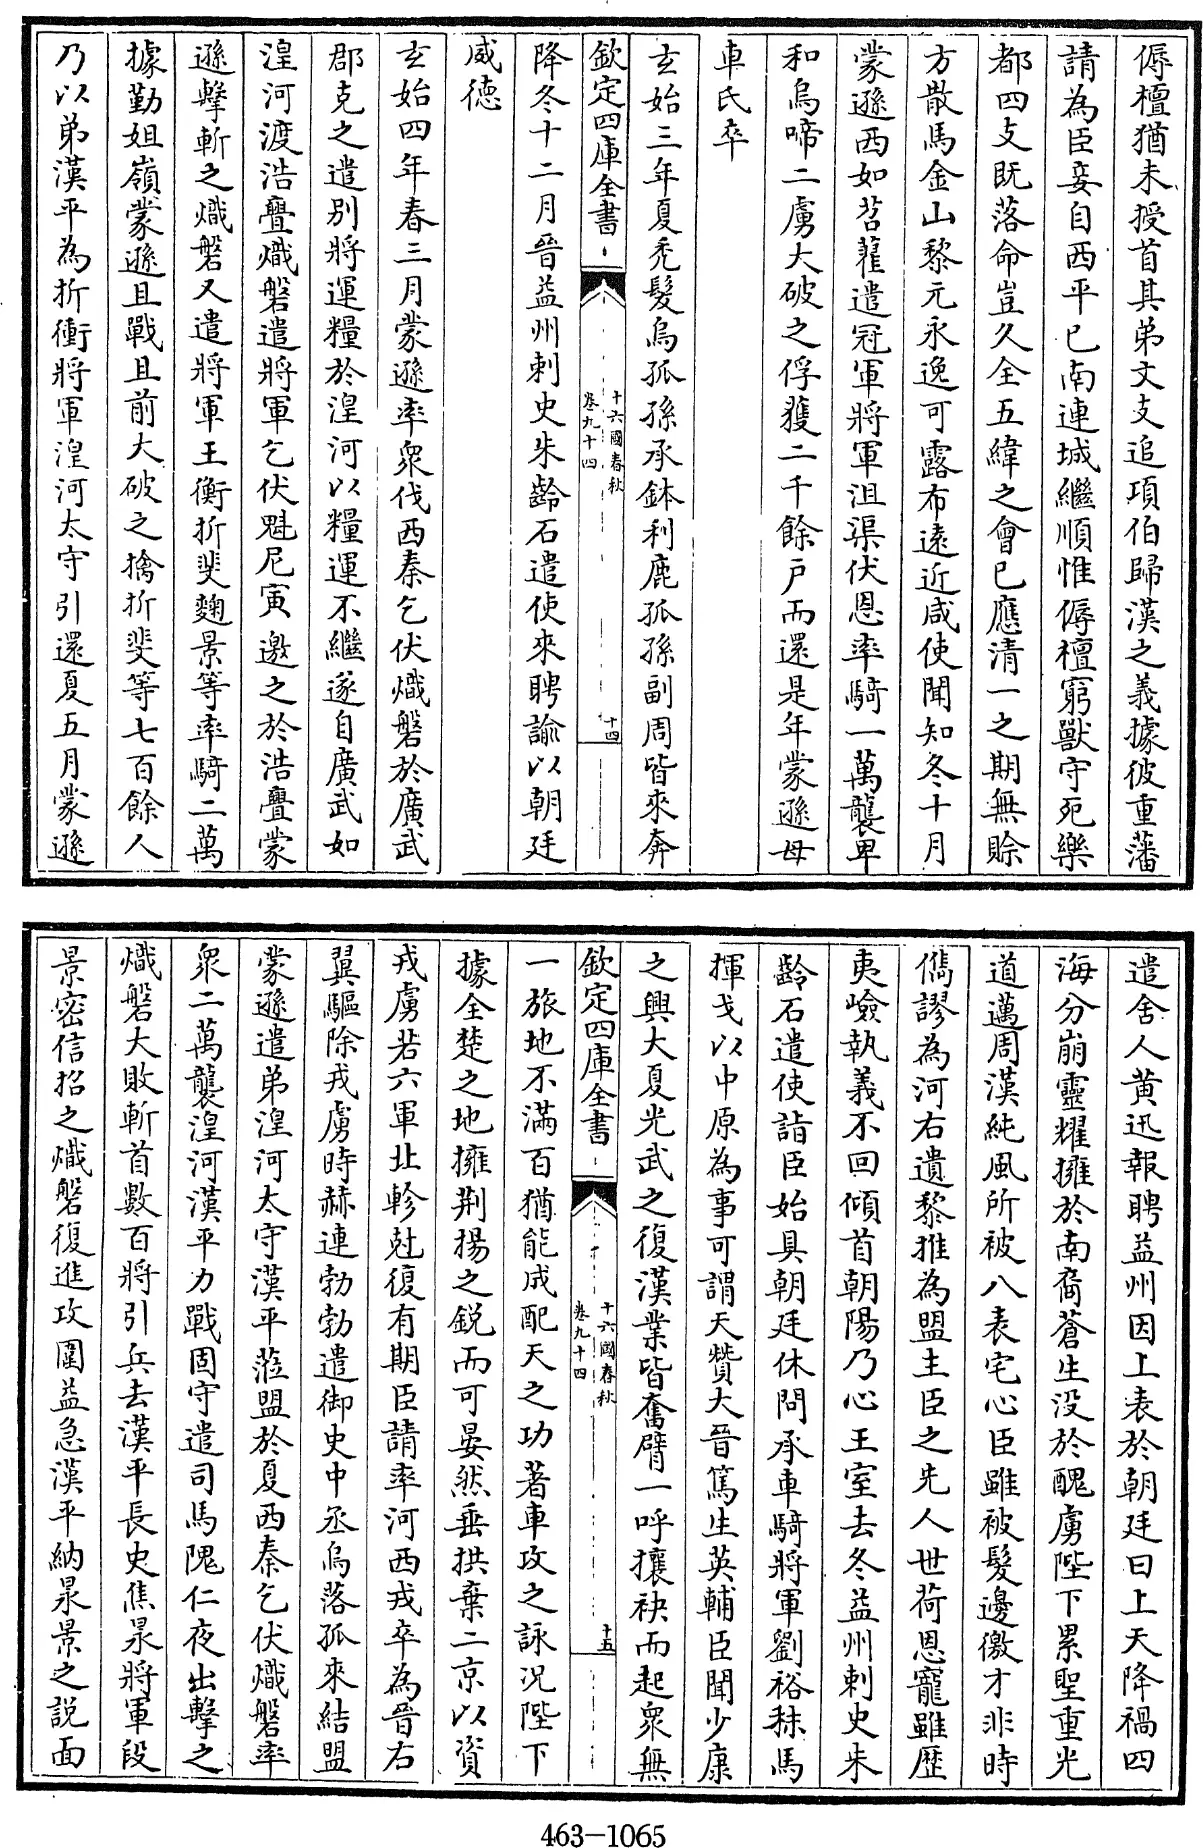 傉檀猶未授首其弟文支追項伯歸漢之義據彼重藩
請為臣妾自西平已南連城繼順惟傉檀窮獸守死樂
都四支既落命豈久全五緯之會已應清一之期無賒
方散馬金山黎元永逸可露布遠近咸使聞知冬十月
蒙遜西如苕藋遣冠軍將軍沮渠伏恩率騎一萬襲卑
和烏啼二虜大破之俘獲二千餘戶而還是年蒙遜母
車氏卒
玄始三年夏禿髮烏孤孫承鉢利鹿孤孫副周皆來奔
欽定四庫全書
十六國春秋
卷九十四
十四
降冬十二月晉益州刺史朱齡石遣使來聘諭以朝廷
威德
玄始四年春三月蒙遜率衆伐西秦乞伏熾磐於廣武
郡克之遣别將運糧於湟河以糧運不繼遂自廣武如
湟河渡浩亹熾磐遣將軍乞伏魁尼寅邀之於浩亹蒙
遜擊斬之熾磐又遣將軍王衡折斐麴景等率騎二萬
據勤姐嶺蒙遜且戰且前大破之擒折斐等七百餘人
乃以弟漢平為折衝將軍湟河太守引還夏五月蒙遜
遣舍人黄迅報聘益州因上表於朝廷曰上天降禍四
海分崩靈耀擁於南裔蒼生没於醜虜陛下累聖重光
道邁周漢純風所被八表宅心臣雖被髮邊徼才非時
儁謬為河右遺黎推為盟主臣之先人世荷恩寵雖歷
夷嶮執義不回傾首朝陽乃心王室去冬益州刺史朱
齡石遣使詣臣始具朝廷休問承車騎將軍劉裕秣馬
揮戈以中原為事可謂天贊大晉篤生英輔臣聞少康
之興大夏光武之復漢業皆奮臂一呼攘袂而起衆無
欽定四庫全書
十六國春秋
卷九十四
十五
一旅地不滿百猶能成配天之功著車攻之詠况陛下
據全楚之地擁荆揚之鋭而可晏然垂拱棄二京以資
戎虜若六軍北軫尅復有期臣請率河西戎卒為晉右
翼驅除戎虜時赫連勃勃遣御史中丞烏落孤來結盟
蒙遜遣弟湟河太守漢平蒞盟於夏西秦乞伏熾磐率
衆二萬襲湟河漢平力戰固守遣司馬隗仁夜出擊之
熾磐大敗斬首數百將引兵去漢平長史焦昶將軍段
景密信招之熾磐復進攻圍益急漢平納昶景之説面
463-1065